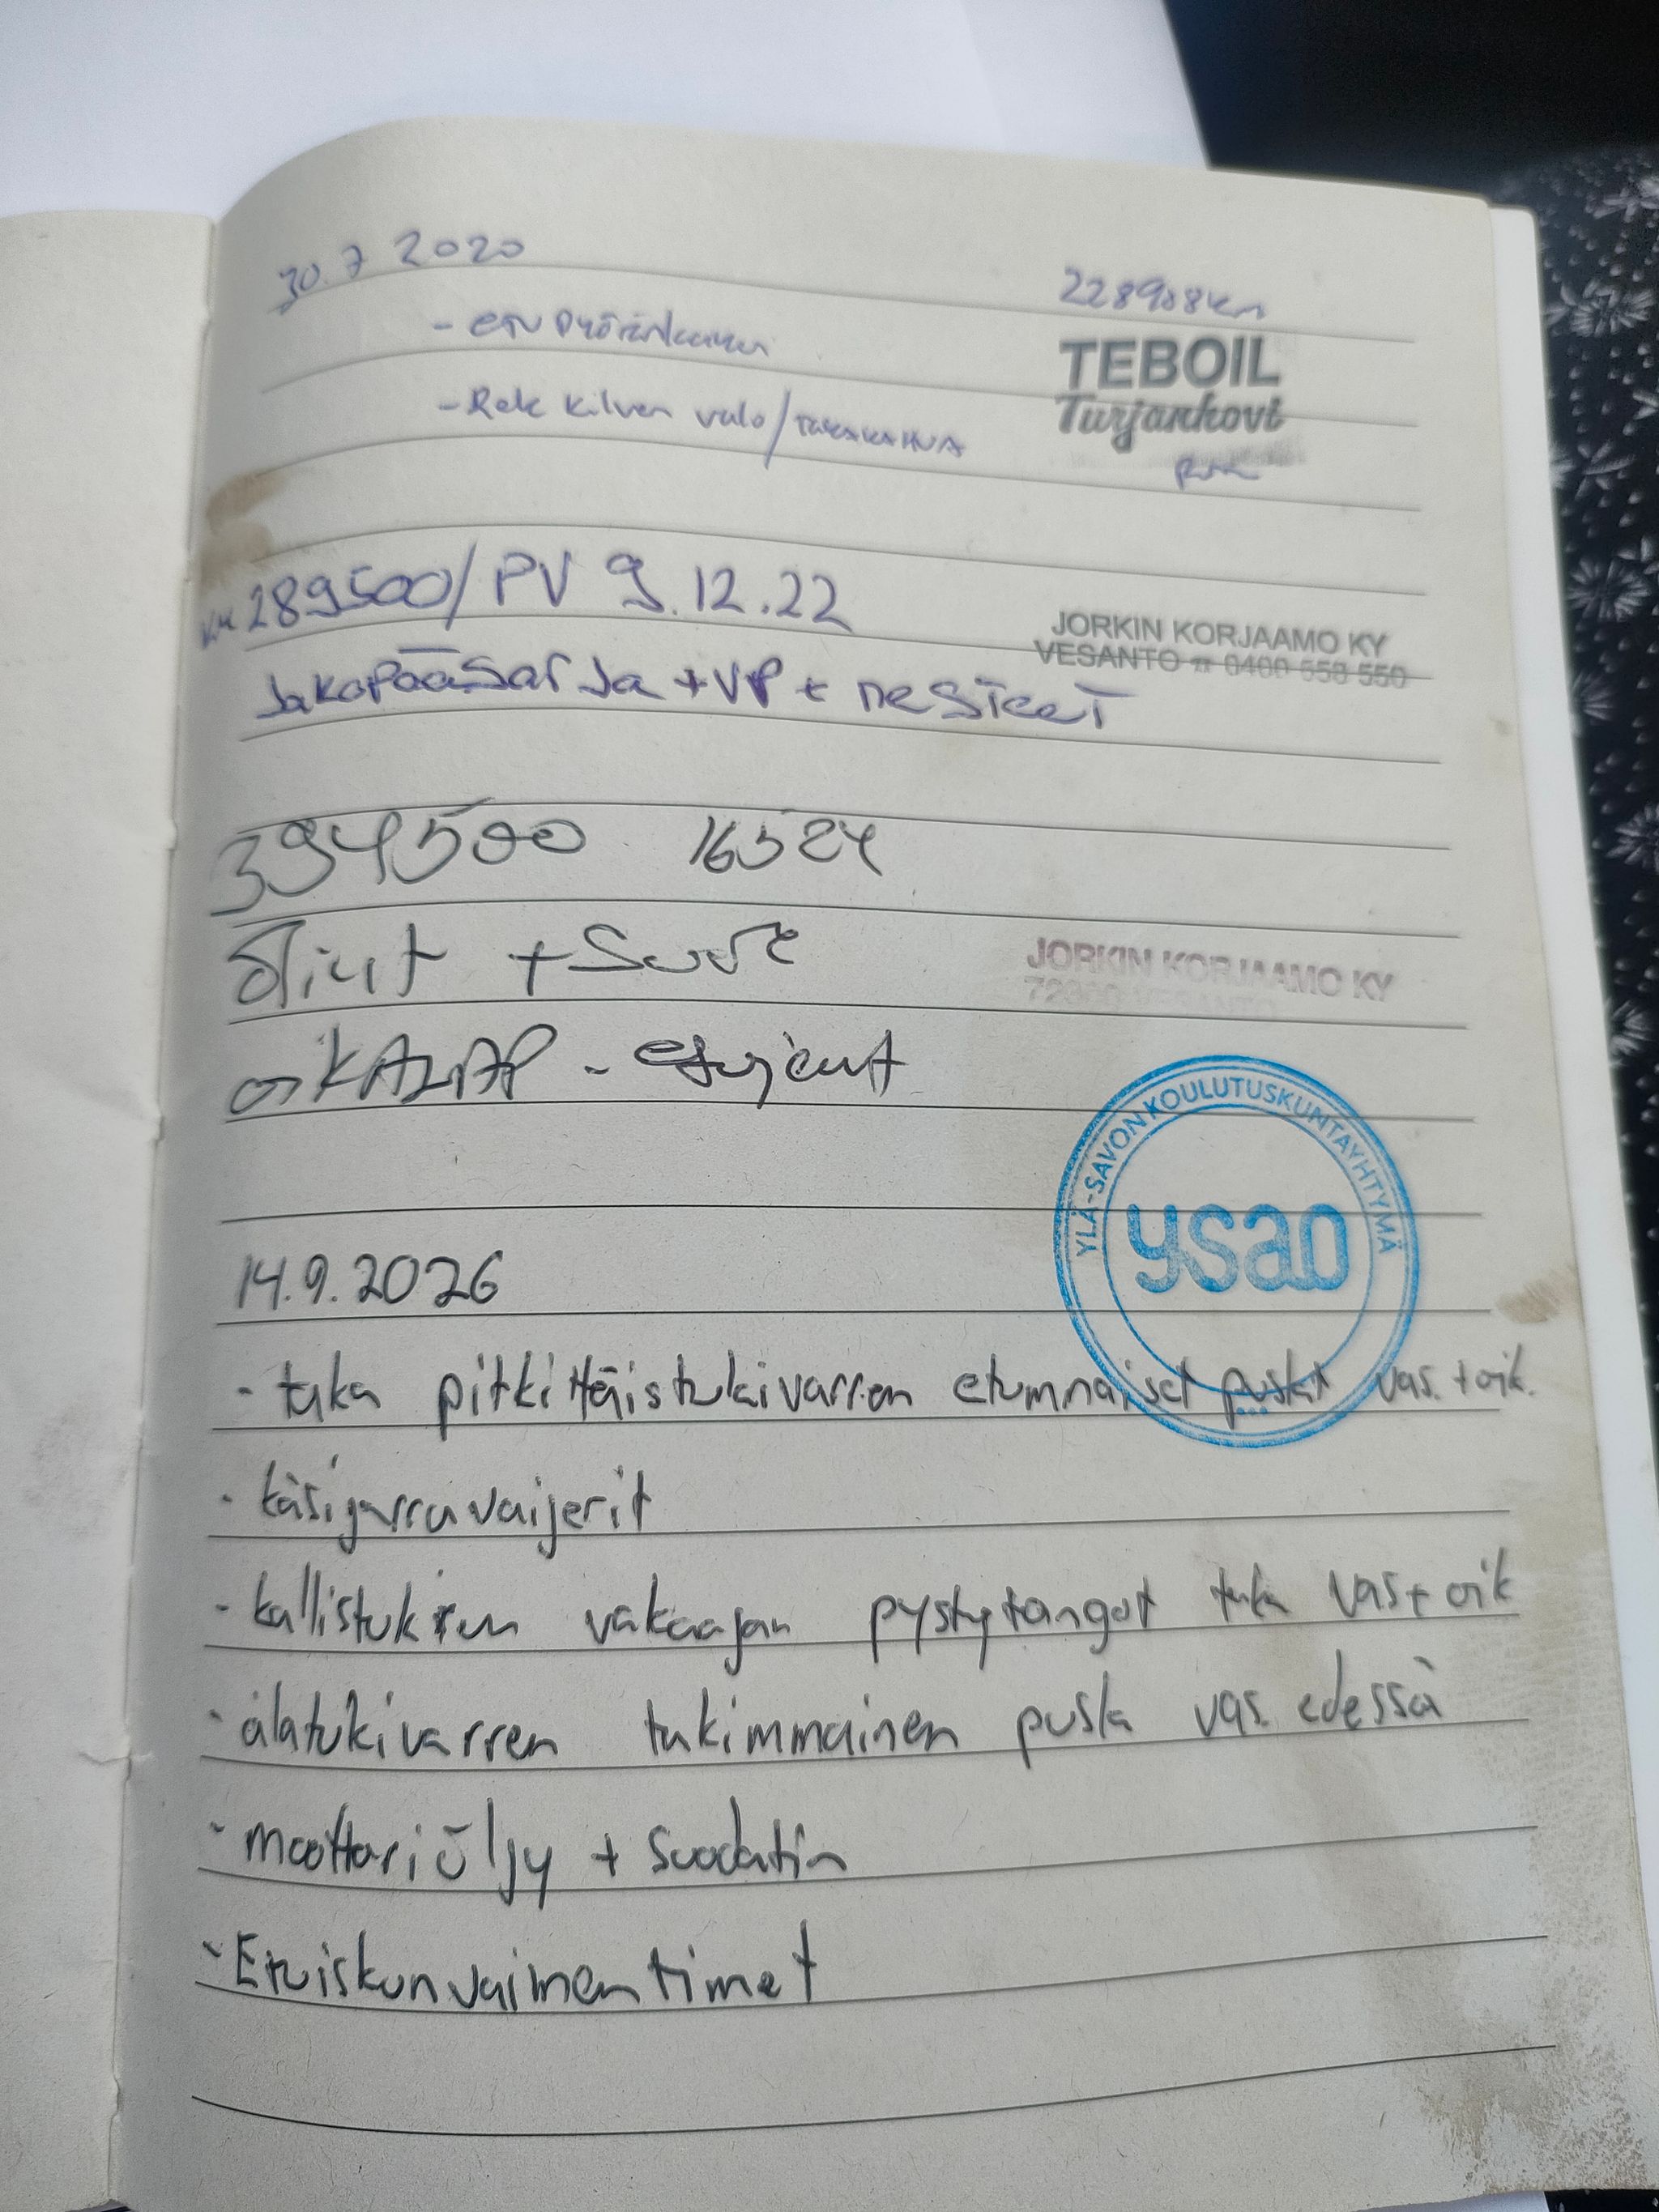 30.7 2020
228988km
- ETU PYÖRÄNLAAKERI
TEBOIL
Turjankovi
- Rek kilven valo/TAKAKAHVA
KM 289500/PV 9.12.22
JORKIN KORJAAMO KY
VESANTO ☎ 0400 558 550
JakoPääSarJa + VP + nesTeeT
394500 16524
Öljyt + Suod
JORKIN KORJAAMO KY
VESANTO
etujarrut
YLÄ-SAVON KOULUTUSKUNTAYHTYMÄ
ysao
14.9.2026
- taka pitkittäistukivarren etummaiset puslat vas. + oik.
- käsijarruvaijerit
- kallistuksen vakaajan pystytangot taka vas + oik
- alatukivarren takimmainen pusla vas. edessä
- moottoriöljy + suodatin
- Etuiskunvaimentimet